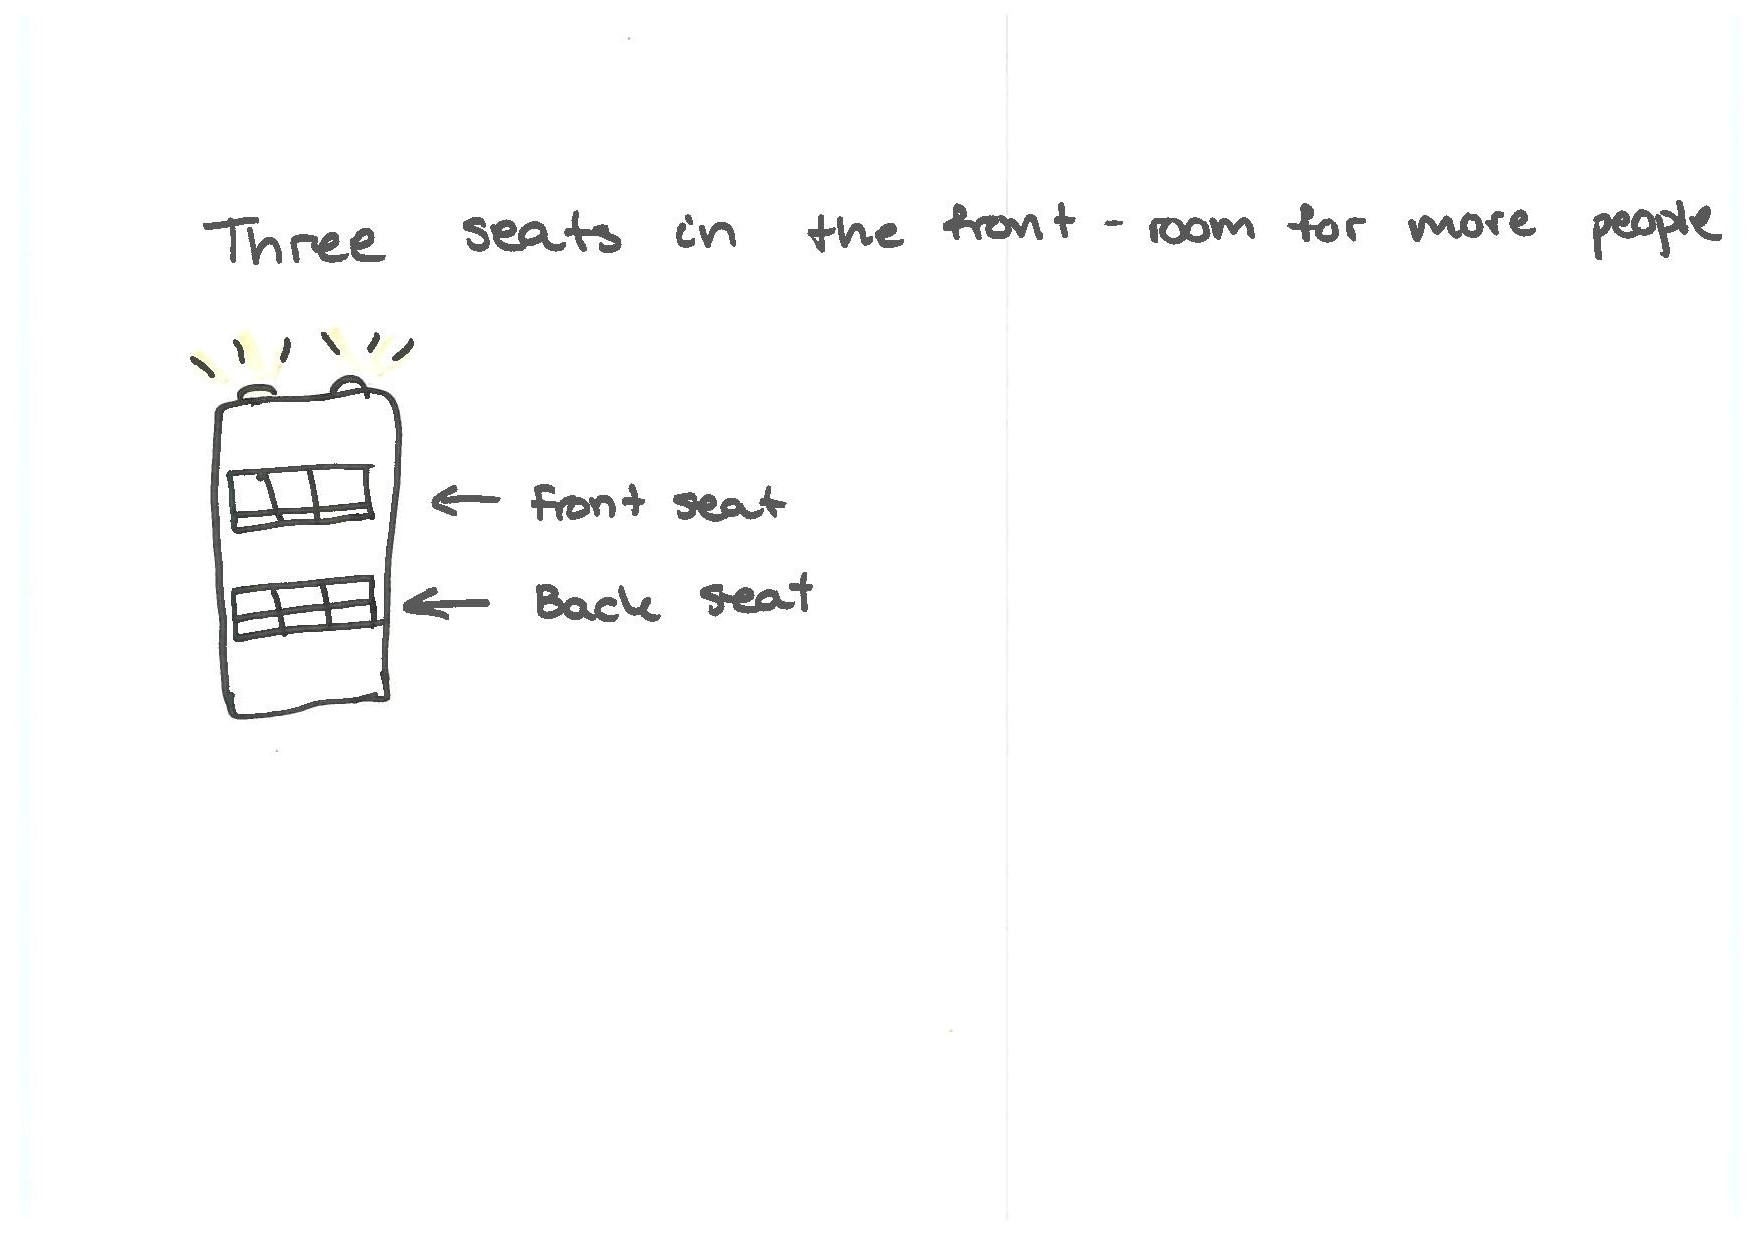 Three seats in the front - room for more people
front seat
Back seat